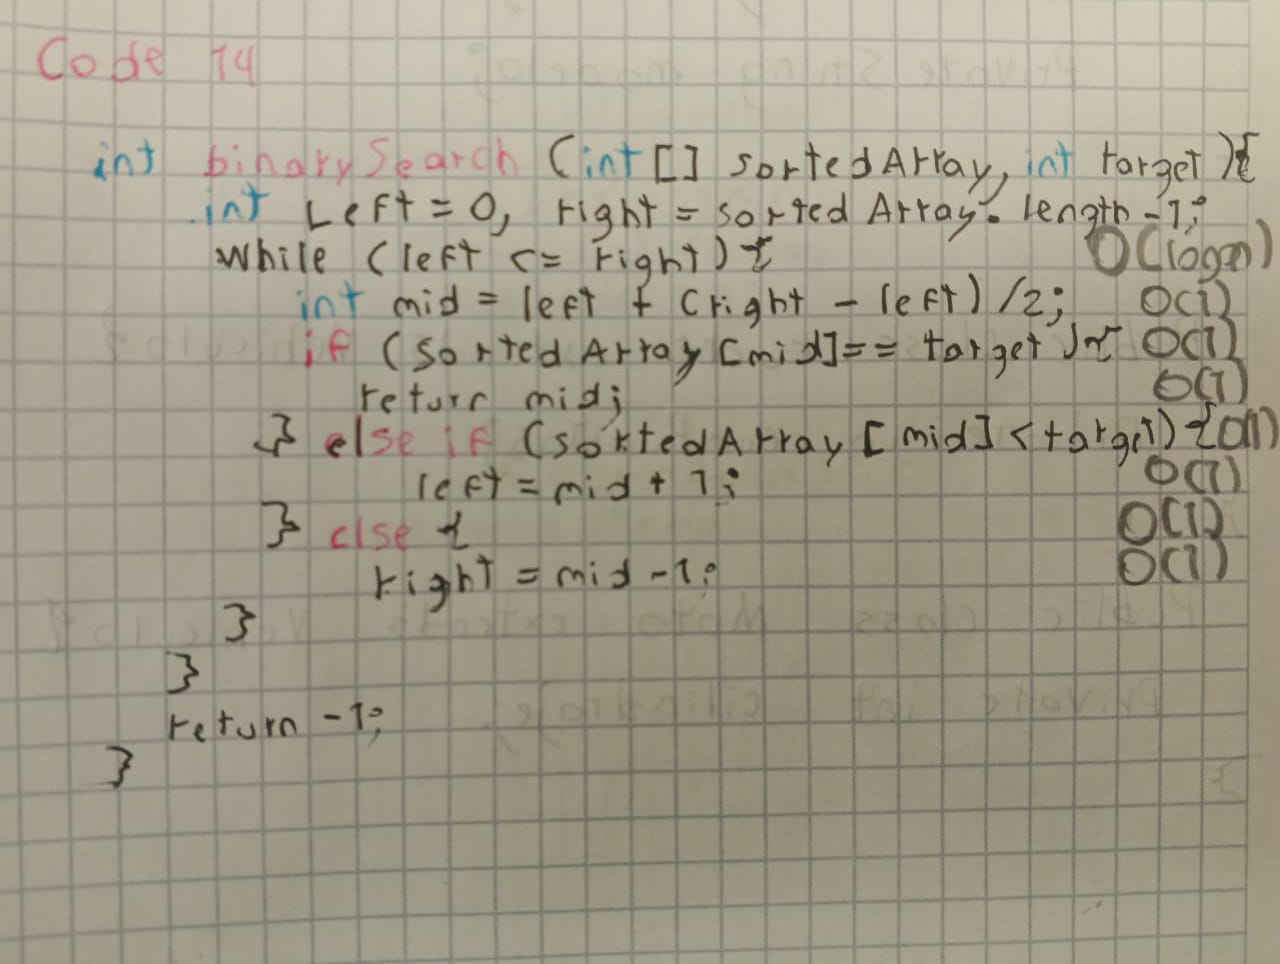 Code 14
int binarySearch (int[] sortedArray, int target){
int Left = 0, right = sorted Array. length -1;
while (left <= right) { O(logn)
int mid = left + (right - left) /2; O(1)
if (sorted Array [mid] == target ){ O(1)
return mid; O(1)
} else if (sortedArray [mid] < target) { O(1)
left = mid + 1; O(1)
} else { O(1)
right = mid -1; O(1)
}
}
return -1;
}